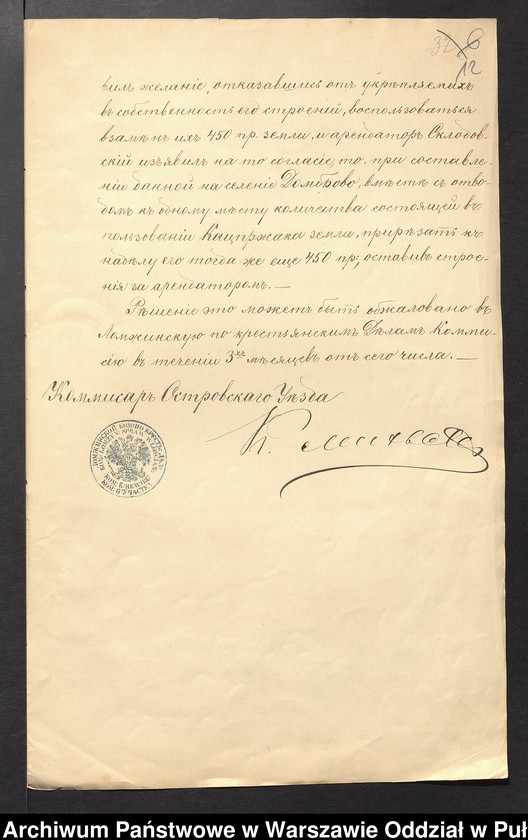 12
вилъ желаніе, отказавшись отъ укрѣпляемыхъ
въ собственность его строеній, воспользоваться
взамѣнъ ихъ 450 пр. земли, и арендаторъ Склодов-
скій изъявилъ на то согласіе, то при составле-
ніи данной на селеніе Домброво, вмѣстѣ съ отво-
домъ къ одному мѣсту количества состоящей въ
пользованіи Кацпржака земли, прирѣзать къ
надѣлу его тогда же еще 450 пр; оставивъ строе-
нія за арендаторомъ. —
Рѣшеніе это можетъ быть обжаловано въ
Ломжинскую по крестьянскимъ Дѣламъ Комми-
сію въ теченіи 3хъ мѣсяцевъ отъ сего числа. —
Коммисаръ Островскаго Уѣзда
К.
Archiwum Państwowe w Warszawie Oddział w Puł